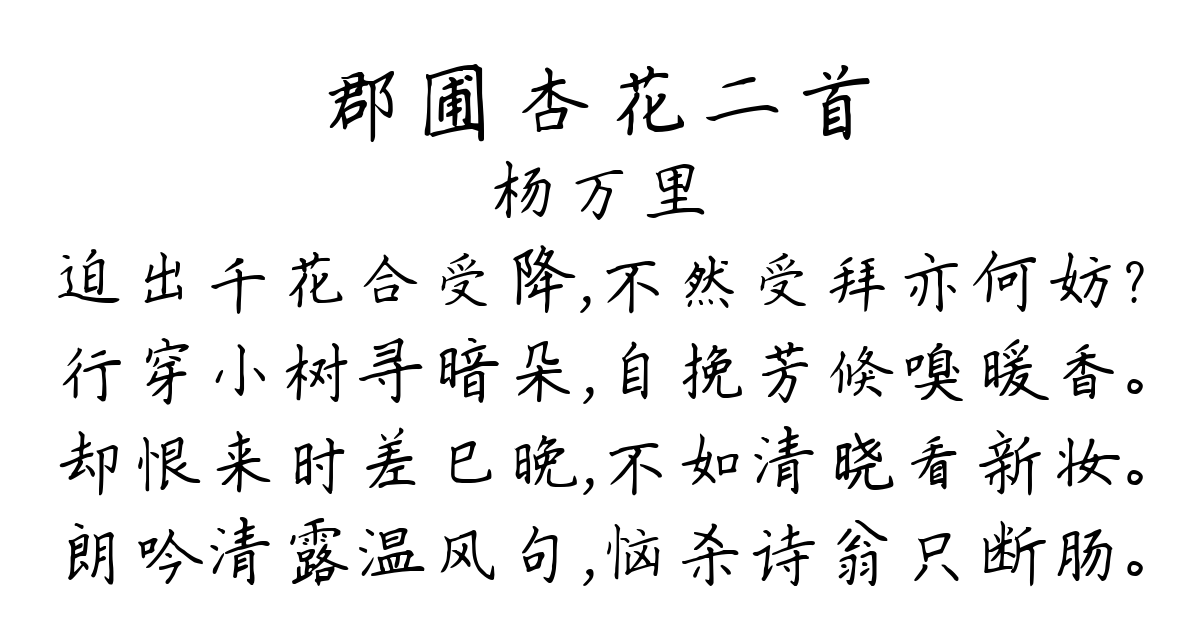 郡圃杏花二首
杨万里
迫出千花合受降,不然受拜亦何妨?
行穿小树寻暗朵,自挽芳倏嗅暖香。
却恨来时差巳晚,不如清晓看新妆。
朗吟清露温风句,恼杀诗翁只断肠。